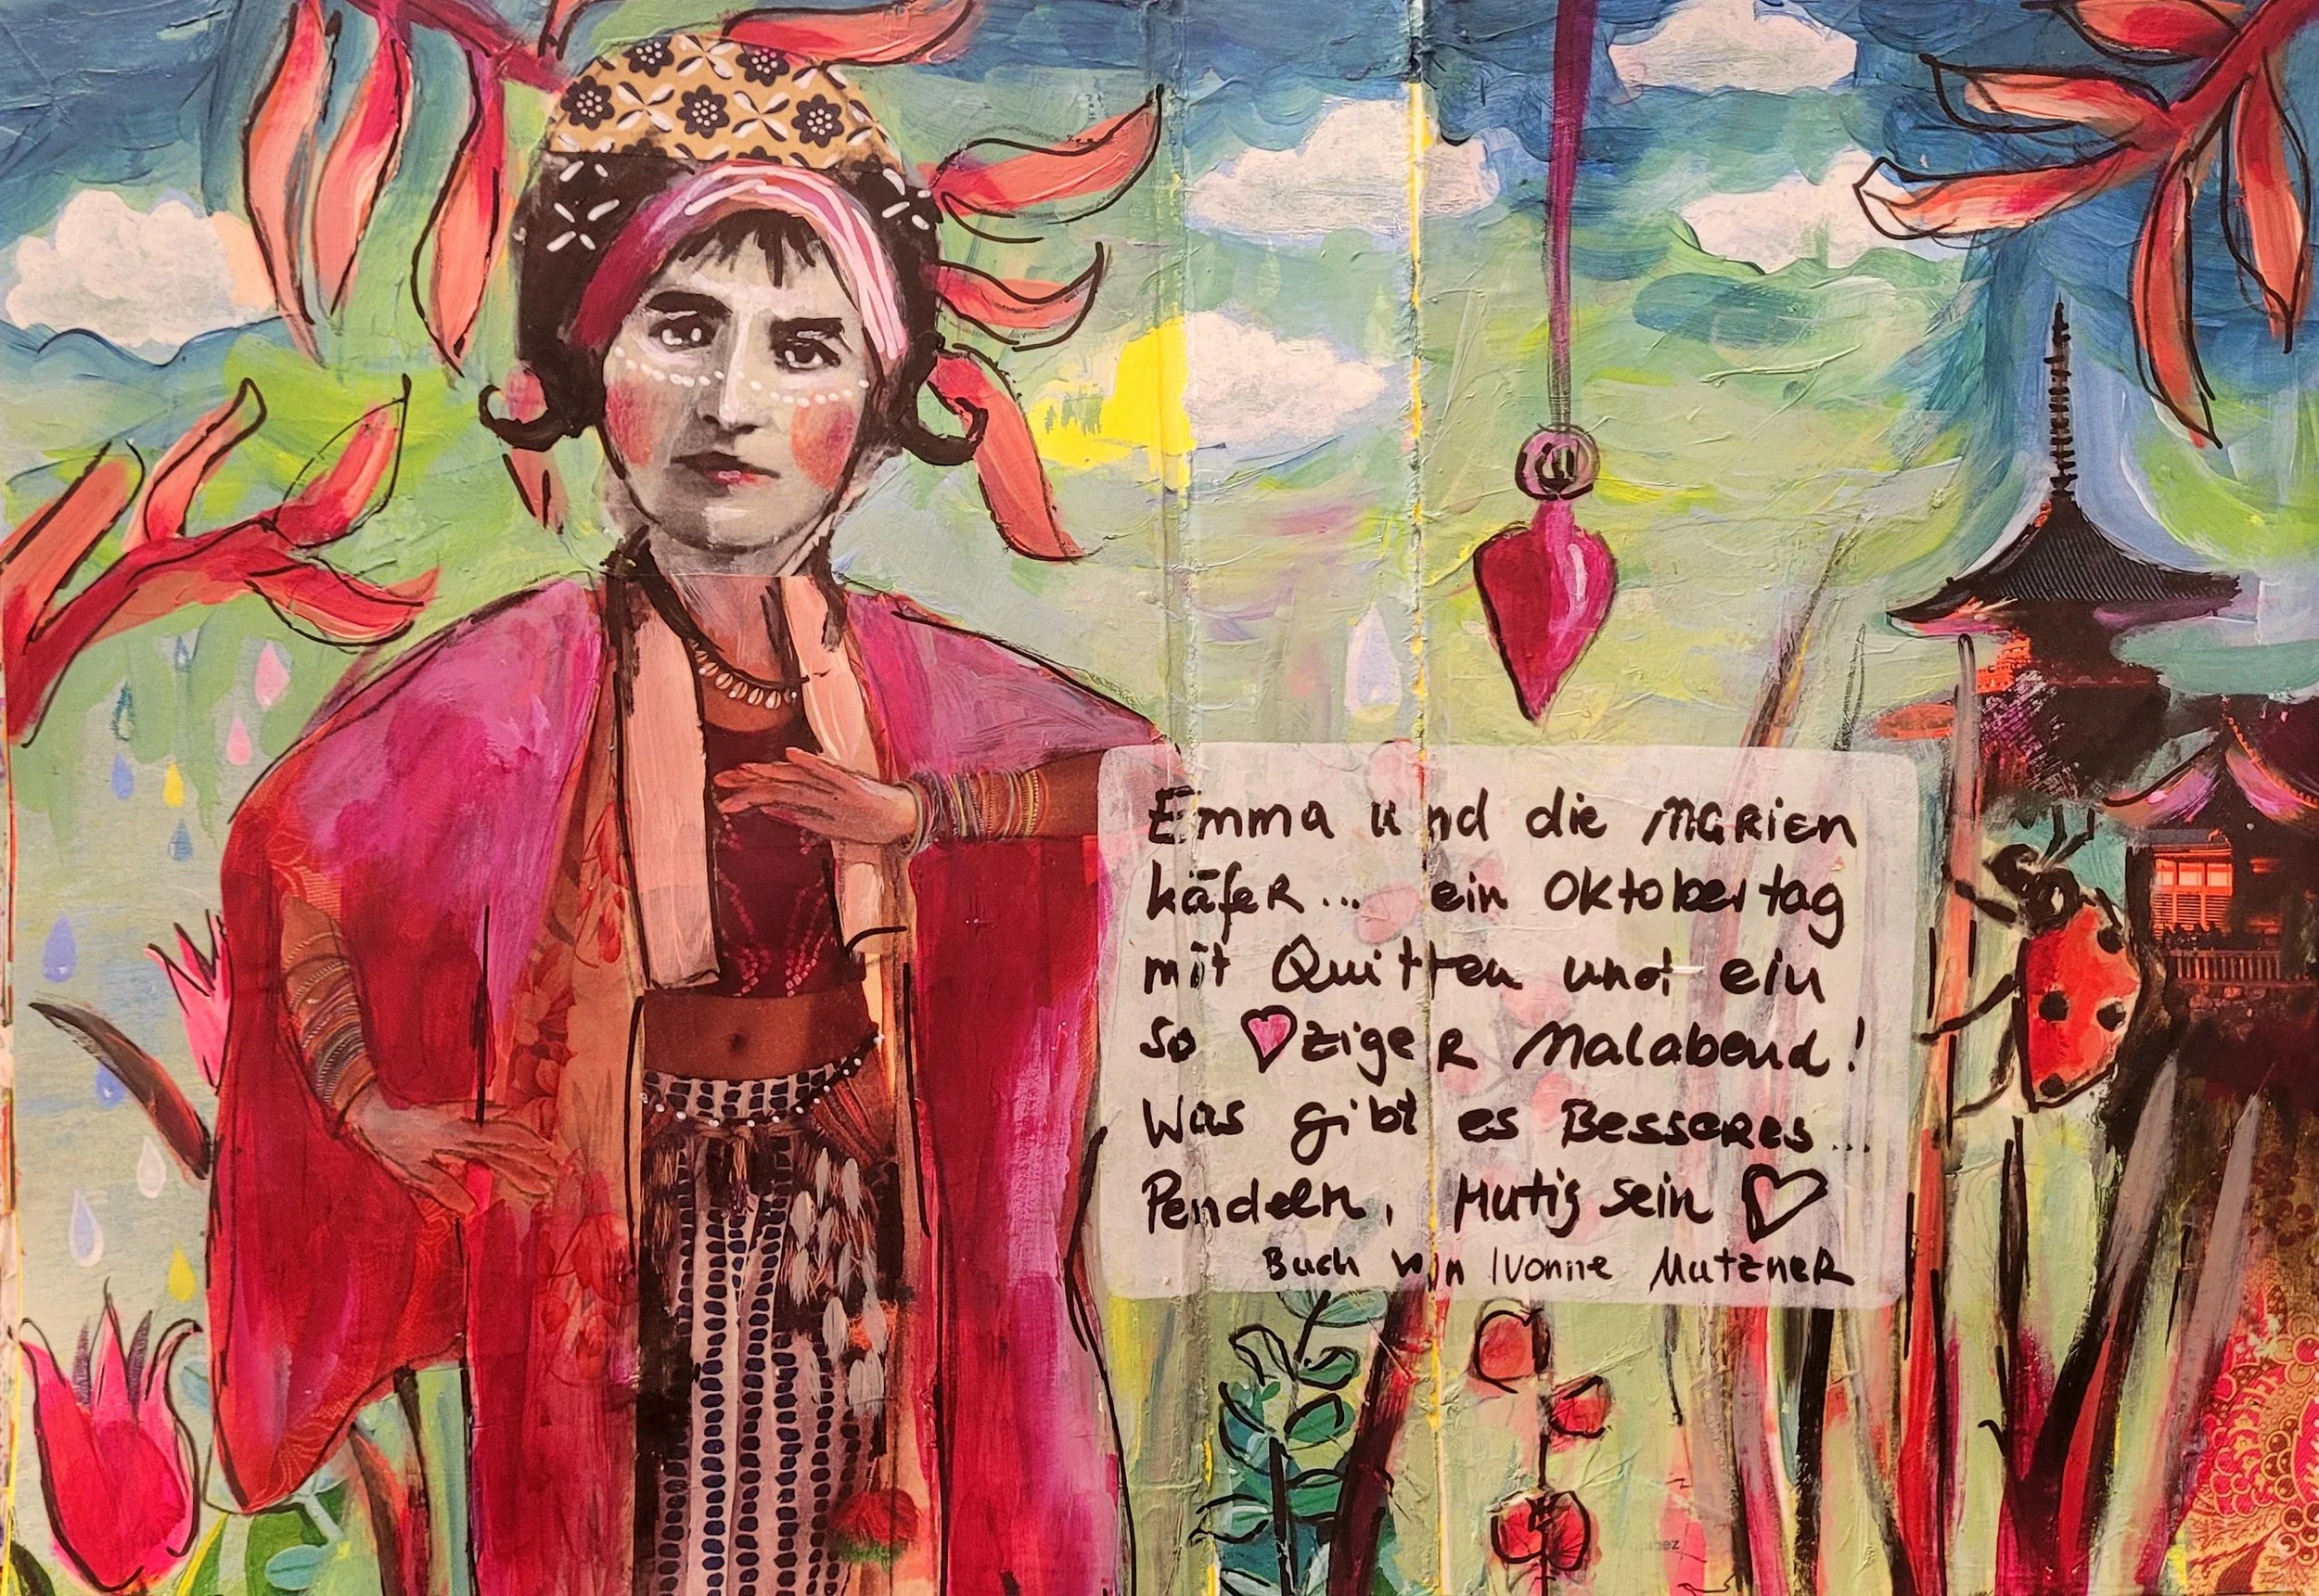 Emma und die Marien
käfer... ein Oktobertag
mit Quitten und ein
so ♥ziger Malabend!
Was gibt es Besseres...
Pendeln, Mutig sein ♡
Buch von Ivonne Mutzner